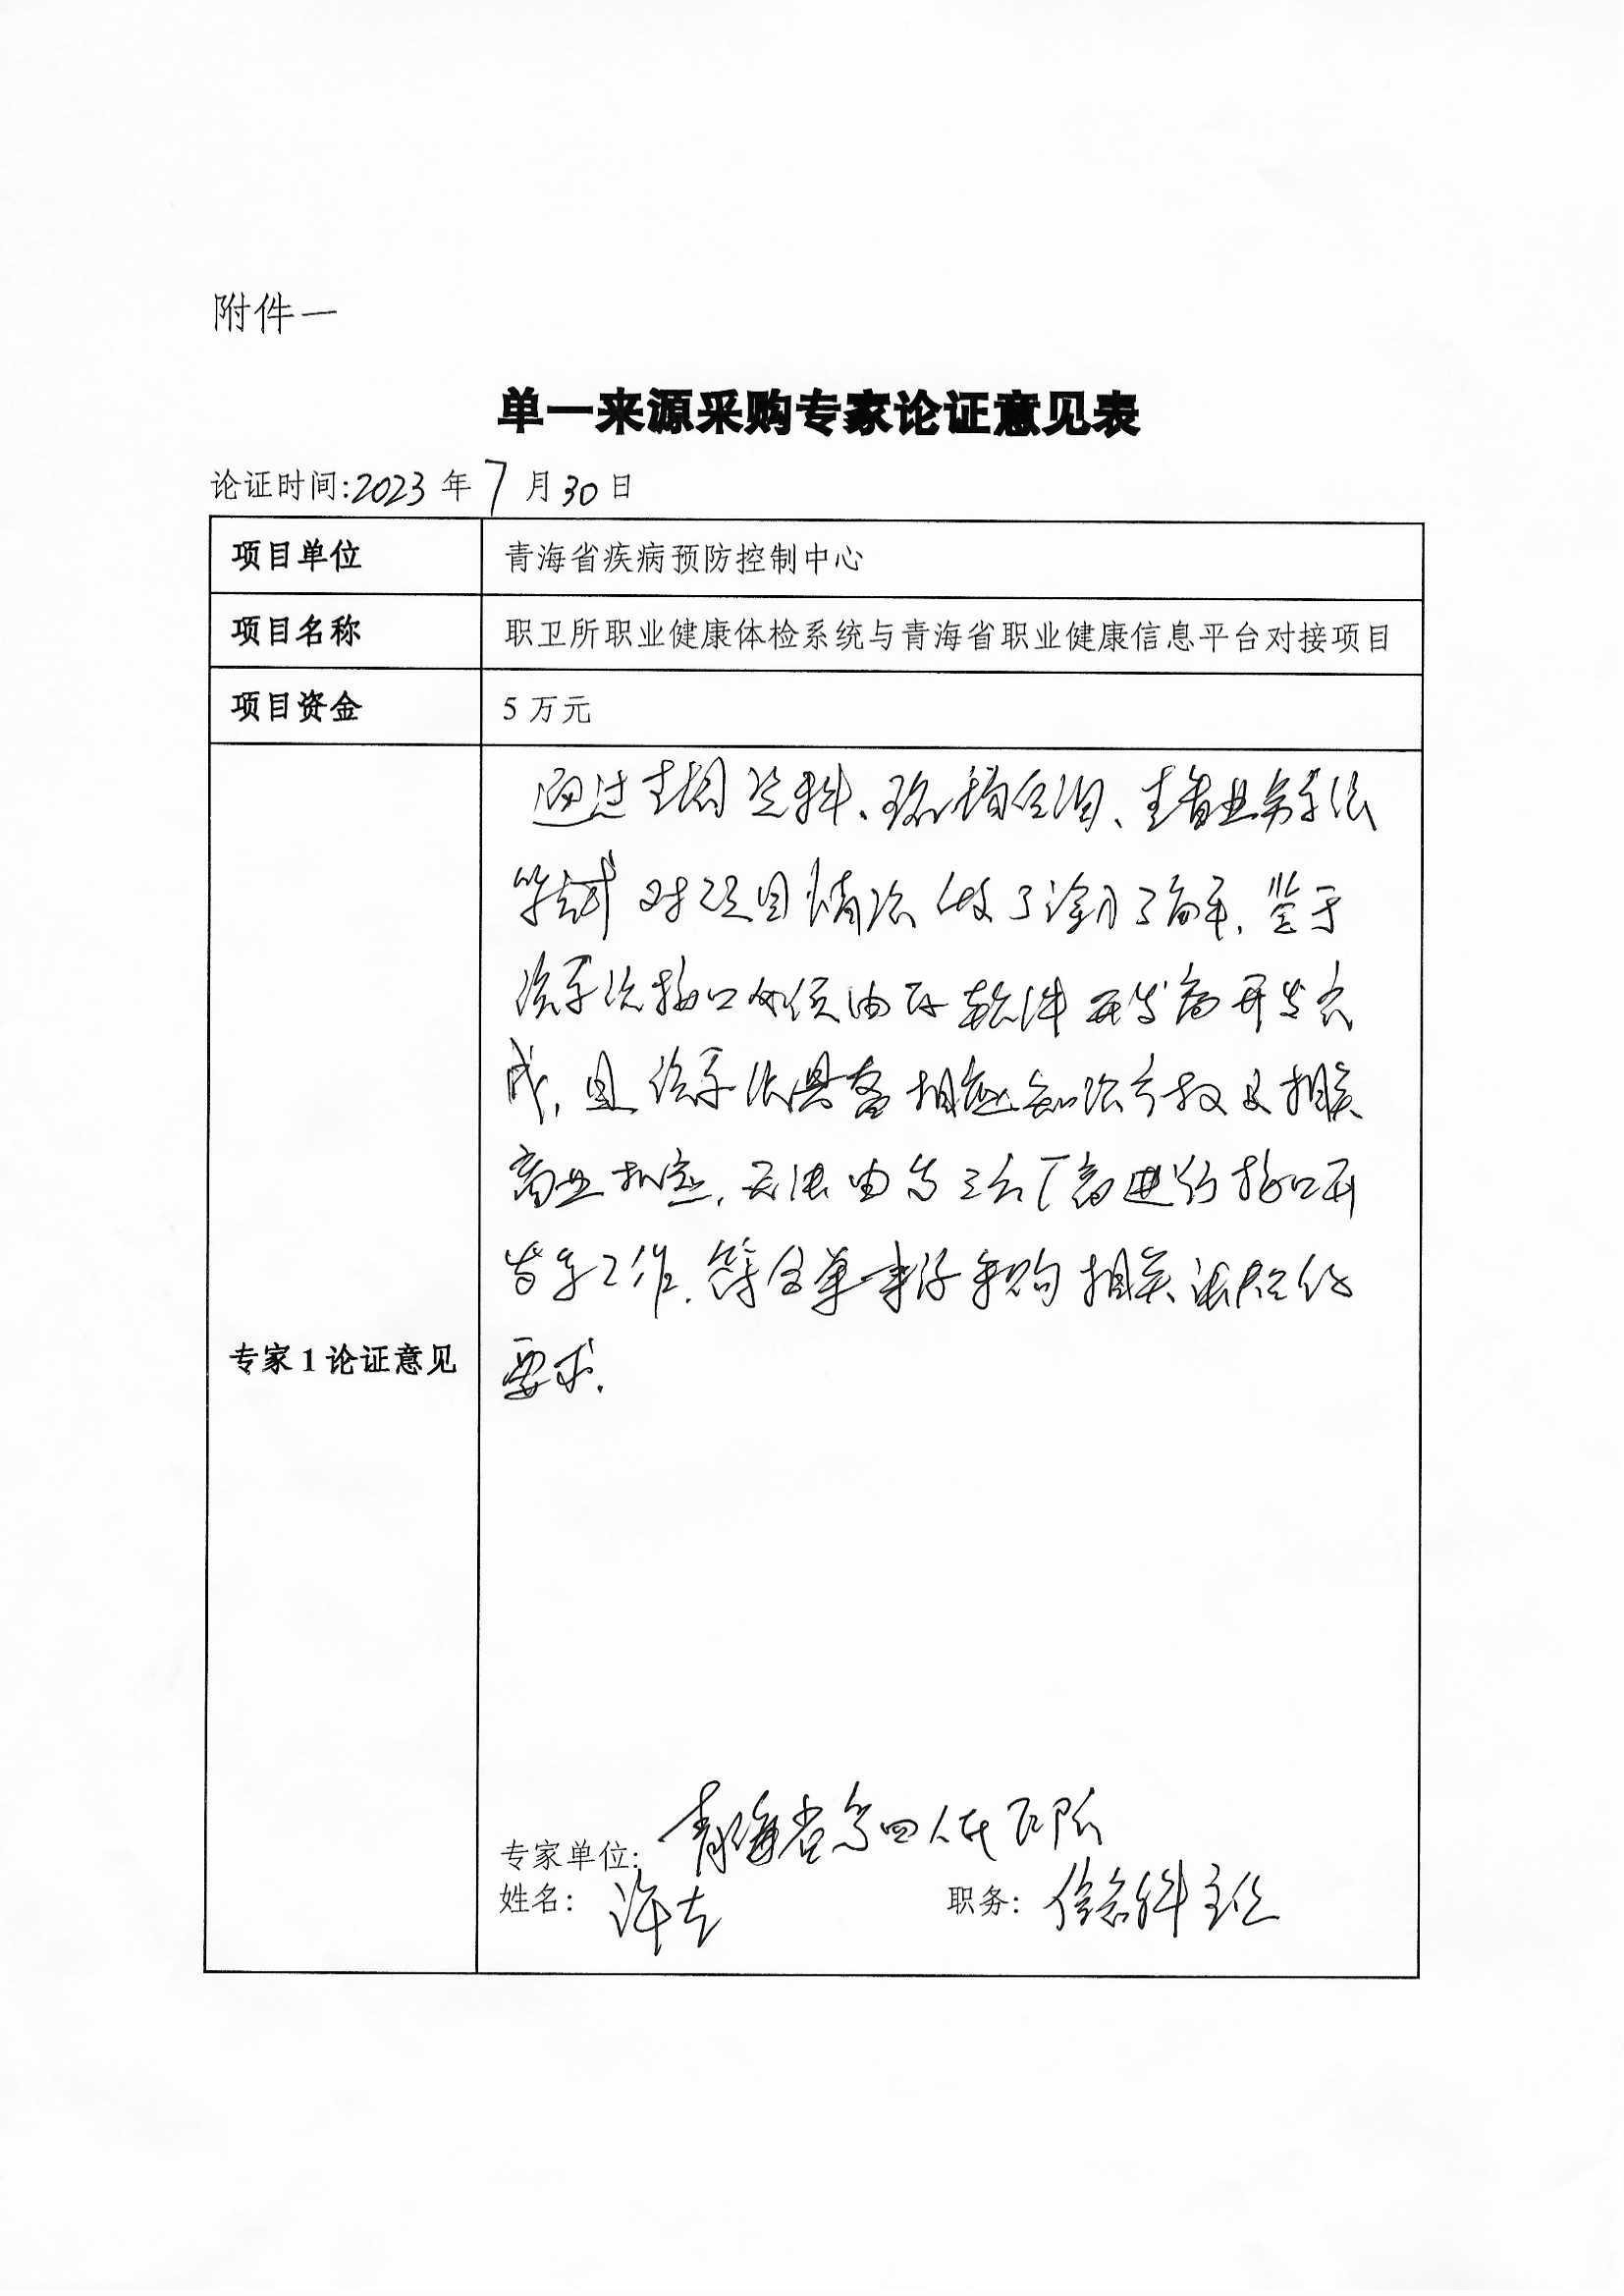 附件一
单一来源采购专家论证意见表
论证时间:2023 年 7 月 30 日
项目单位 青海省疾病预防控制中心
项目名称 职卫所职业健康体检系统与青海省职业健康信息平台对接项目
项目资金 5 万元
通过查阅资料、现场查询、查看业务系统
等方式对项目情况做了详细了解,鉴于
该系统接口必须由原软件开发商开发完
成,且该系统具备相应知识产权及相关
商业机密,无法由第三方厂商进行接口开
发等工作,符合单一来源采购相关法规的
要求.
专家1论证意见
专家单位: 青海省第四人民医院
姓名: 许 职务: 信息科主任